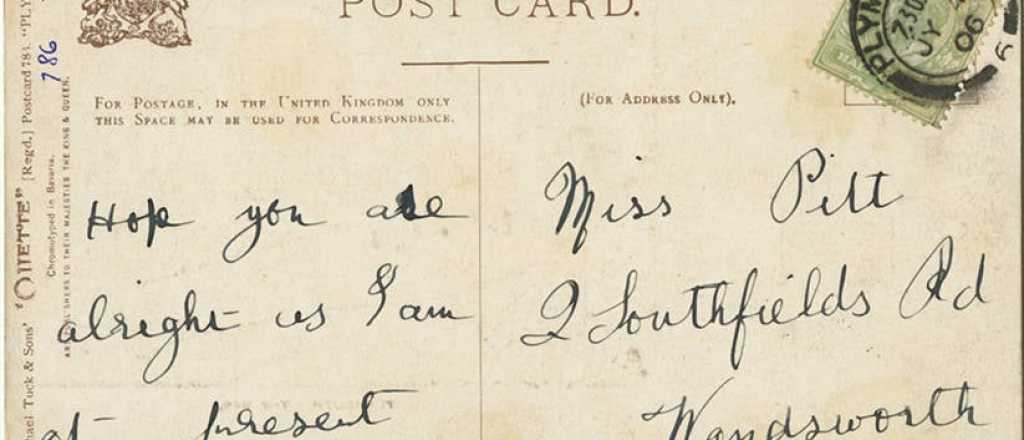 POST CARD.
FOR POSTAGE, IN THE UNITED KINGDOM ONLY
THIS SPACE MAY BE USED FOR CORRESPONDENCE.
(FOR ADDRESS ONLY).
Hope you are
alright as I am
at present
Miss Pitt
2 Southfields Rd
Wandsworth
PLYM
7.30
JY
06
786
[Regd.] Postcard 783. "PLY
"OILETTE"
Chromotyped in Bavaria.
TO THEIR MAJESTIES THE KING & QUEEN.
hael Tuck & Sons'